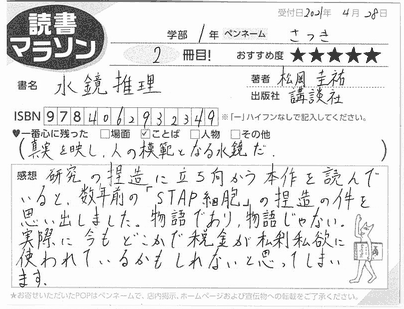 読書マラソン
受付日2021年 4月 28日
学部 1年 ペンネーム さつき
2 冊目! おすすめ度 ★★★★★
書名 水鏡推理
著者 松岡圭祐
出版社 講談社
ISBN 9784062932349 ※「ー」ハイフンなしで記入してください。
♥一番心に残った □場面 ☑ことば □人物 □その他
(真実を映し、人の模範となる水鏡だ.)
感想 研究の捏造に立ち向かう本作を読んで
いると、数年前の「STAP細胞」の捏造の件を
思い出しました。物語であり、物語じゃない。
実際に今もどこかで税金が私利私欲に
使われているかもしれないと思ってしまい
ます.
★お寄せいただいたPOPはペンネームで、店内掲示、ホームページおよび宣伝物への転載をご了承ください。